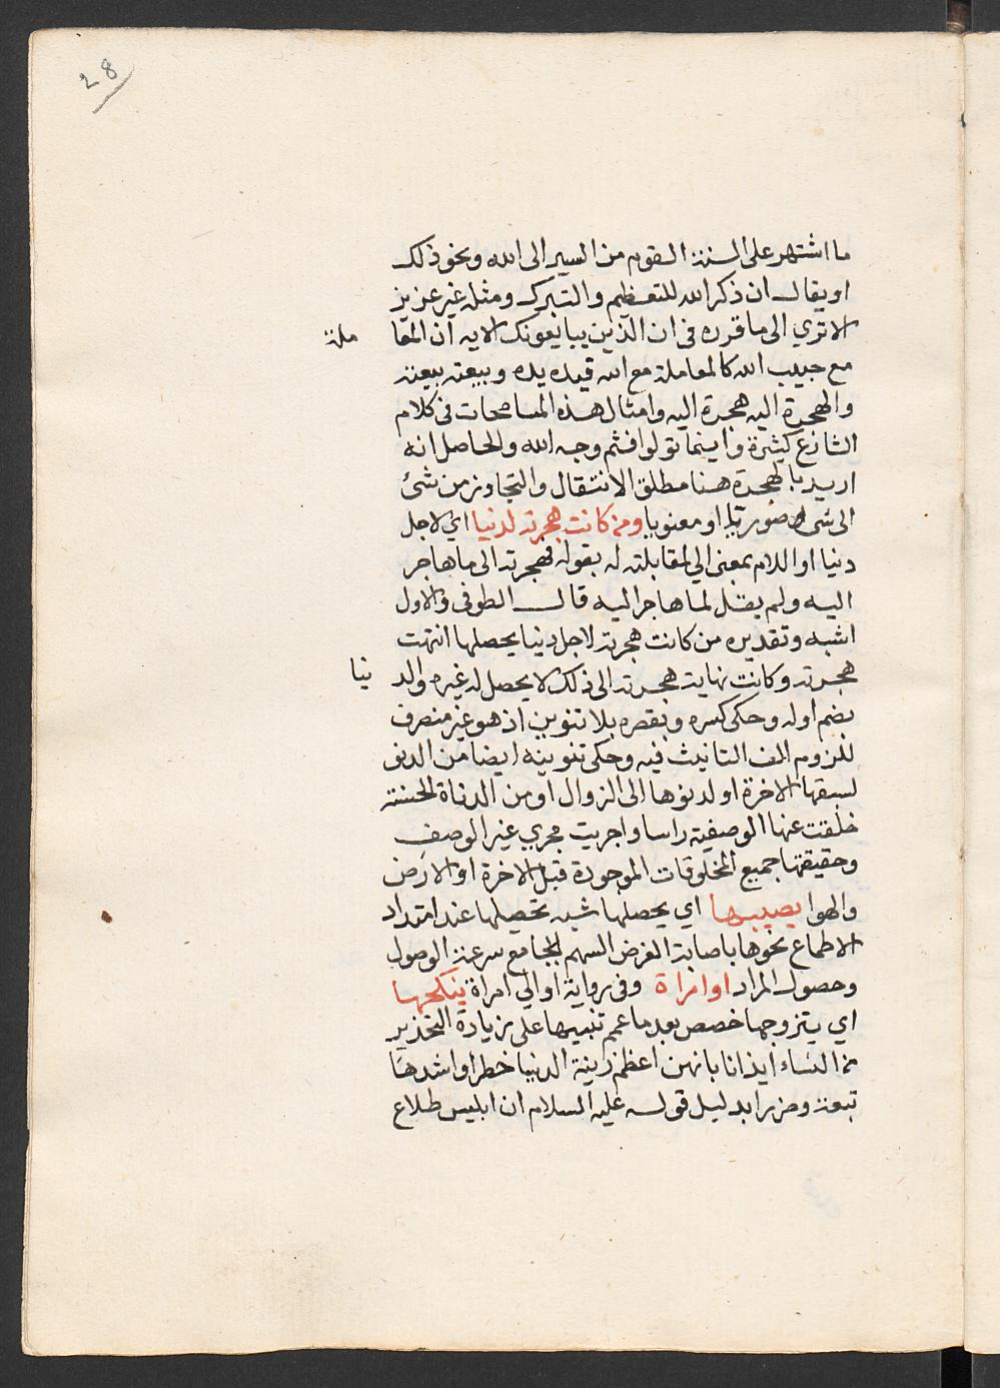 28
ما اشتهر على السنة القوم من السير الى الله ونحو ذلك
او يقال ان ذكر الله للتعظيم والتبرك ومثله غير عزيز
الا تري الى ما قرره في ان الذين يبايعونك الايه ان المعا
ملة
مع حبيب الله كالمعاملة مع الله فيده يده وبيعته بيعته
والهجرة اليه هجرة اليه وامثال هذه المسامحات في كلام
الشارع كثيرة واينما تولوا فثم وجه الله والحاصل انه
اريد بالهجرة هنا مطلق الانتقال والتجاوز من شئ
الى شئ صوريا او معنويا ومن كانت هجرته لدنيا اي لاجل
دنيا او اللام بمعنى الي لمقابلته له بقوله فهجرته الى ما هاجر
اليه ولم يقل لما هاجر اليه قال الطوفى والاول
اشبه وتقديره من كانت هجرته لاجل دنيا يحصلها انتهت
هجرته وكانت نهاية هجرته الى ذلك لا يحصل له غيره والد
نيا
بضم اوله وحكى كسره وبقصره بلا تنوين اذ هو غير منصرف
للزوم الف التانيث فيه وحكى تنوينه ايضا من الدنو
لسبقها الاخرة او لدنوها الى الزوال او من الدناة الخسة
خلفت عنها الوصفية راسا واجريت مجري غير الوصف
وحقيقتها جميع المخلوقات الموجودة قبل الاخرة او الارض
والهوا يصيبها اي يحصلها شبه تحصيلها عند امتداد
الاطماع نحوها باصابة الغرض السهم بجامع سرعة الوصول
وحصول المراد او امراة وفى رواية او الي امراة ينكحها
اي يتزوجها خصص بعد ما عمم تنبيها على زيادة التحذير
من النساء ايذانا بانهن اعظم زينة الدنيا خطرا واشدها
تبعة وضررا بدليل قوله عليه السلام ان ابليس طلاع